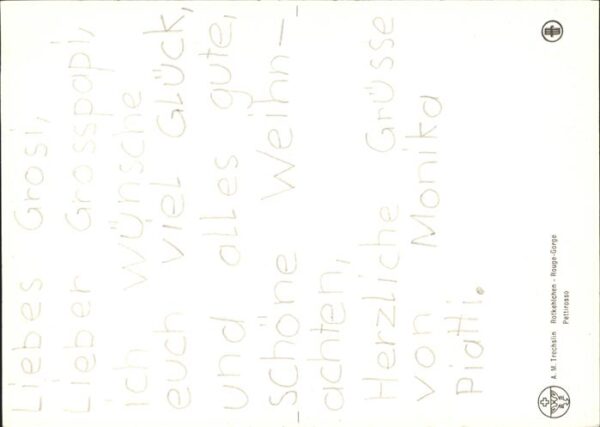 Liebes Grosi,
Lieber Grosspapi,
ich wünsche
euch viel Glück,
und alles gute,
schöne Weihn-
achten,
Herzliche Grüsse
von Monika
Piatti.
A. M. Trechslin Rotkehlchen - Rouge-Gorge
Pettirosso